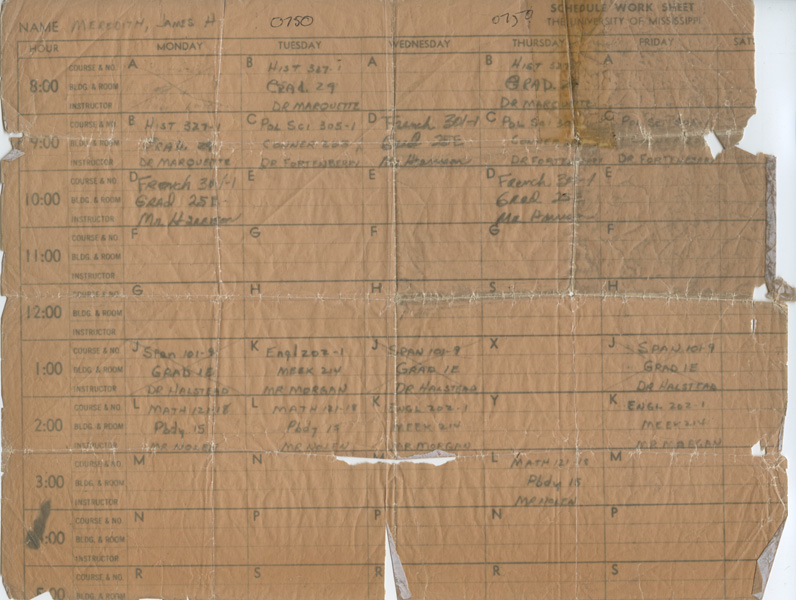 SCHEDULE WORK SHEET
NAME MEREDITH, JAMES H 0750 0750 THE UNIVERSITY OF MISSISSIPPI
HOUR MONDAY TUESDAY WEDNESDAY THURSDAY FRIDAY SAT
8:00 COURSE & NO. A B HIST 327-1 A B HIST 327 A
BLDG. & ROOM GRAD. 29 GRAD. 29
INSTRUCTOR DR MARQUETTE DR MARQUETTE
9:00 COURSE & NO. B HIST 327-1 C POL SCI 305-1 D French 301-1 C POL SCI 305 C POL SCI 305-1
BLDG. & ROOM GRAD. 29 CONNER GRAD CONNER
INSTRUCTOR DR MARQUETTE DR FORTENBERRY Mr DR FORTENBERRY DR FORTENBERRY
10:00 COURSE & NO. D FRENCH 301-1 E E D FRENCH 301-1 E
BLDG. & ROOM GRAD 25E GRAD 25E
INSTRUCTOR MR MR
11:00 COURSE & NO. F G F G F
BLDG. & ROOM
INSTRUCTOR
12:00 COURSE & NO. G H H S H
BLDG. & ROOM
INSTRUCTOR
1:00 COURSE & NO. J SPAN 101-9 K Engl 202-1 J SPAN 101-9 X J SPAN 101-9
BLDG. & ROOM GRAD 1E MEEK 214 GRAD 1E GRAD 1E
INSTRUCTOR DR HALSTEAD MR MORGAN DR HALSTEAD DR HALSTEAD
2:00 COURSE & NO. L MATH 121-18 L MATH 121-18 K ENGL 202-1 Y K ENGL 202-1
BLDG. & ROOM Pbdy 15 Pbdy 15 MEEK 214 MEEK 214
INSTRUCTOR MR NOLEN MR NOLEN MR MORGAN MR MORGAN
3:00 COURSE & NO. M N L MATH 121-18 M
BLDG. & ROOM Pbdy 15
INSTRUCTOR MR NOLEN
:00 COURSE & NO. N P P N P
BLDG. & ROOM
INSTRUCTOR
5:00 COURSE & NO. R S R S
BLDG. & ROOM